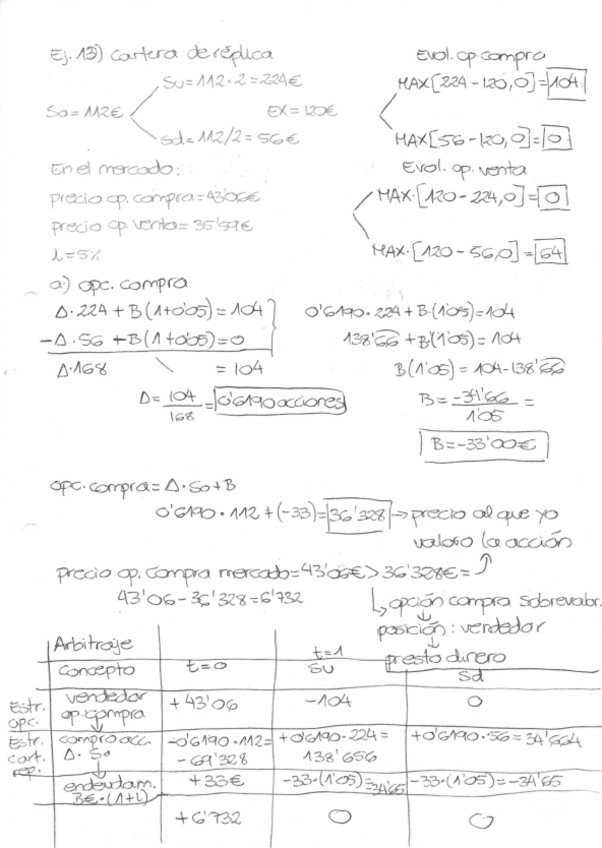 Ej. 13) Cartera de réplica
Su = 112 · 2 = 224€
So = 112€
EX = 120€
Sd = 112/2 = 56€
Evol. op compra
MAX[224 - 120, 0] = 104
MAX[56 - 120, 0] = 0
En el mercado:
precio op. compra = 43'06€
precio op. venta = 35'59€
i = 5%
Evol. op. venta
MAX·[120 - 224, 0] = 0
MAX·[120 - 56, 0] = 64
a) opc. compra
Δ · 224 + B(1+0'05) = 104
-Δ · 56 + B(1+0'05) = 0
Δ·168 = 104
Δ = 104/168 = 0'6190 acciones
0'6190 · 224 + B·(1'05) = 104
138'66 + B·(1'05) = 104
B(1'05) = 104 - 138'66
B = -34'66/1'05 =
B = -33'00€
opc. compra = Δ · So + B
0'6190 · 112 + (-33) = 36'328 → precio al que yo
valoro la acción
precio op. compra mercado = 43'06€ > 36'328€ =
43'06 - 36'328 = 6'732
↳ opción compra sobrevalor.
↓
posición: vendedor
↓
presto dinero
Arbitraje
t=1
Concepto t=0 Su Sd
Estr. opc. vendedor op. compra +43'06 -104 0
Estr. cart. rep. compro acc. Δ · So -0'6190 · 112 = -69'328 +0'6190 · 224 = 138'656 +0'6190 · 56 = 34'664
endeudam. B€·(1+i) +33€ -33·(1'05) = -34'65 -33·(1'05) = -34'65
+6'732 0 0